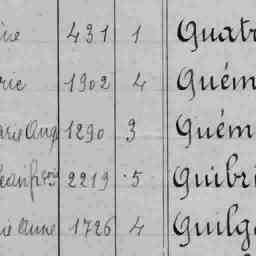 rie 431 1 Quatr
rie 1902 4 Guém
arie Ang 1290 3 Guém
Jean fs 2219 5 Guibri
ie Anne 1726 4 Guilg